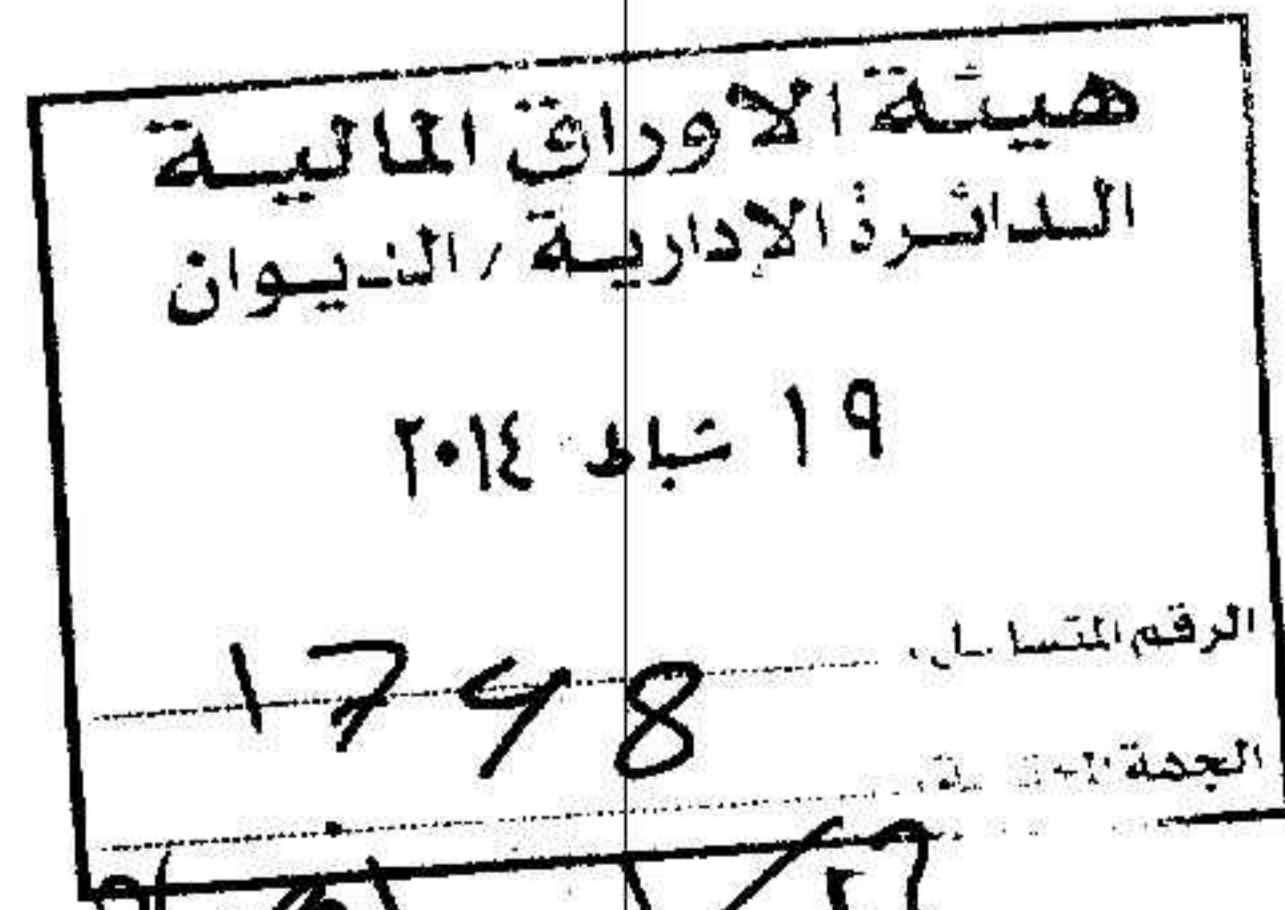 هيئة الاوراق المالية
الدائرة الإدارية / الديوان
١٩ شباط ٢٠١٤
الرقم المتسلسل. 1748
الجهة